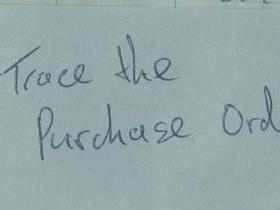 Trace the
Purchase Ord